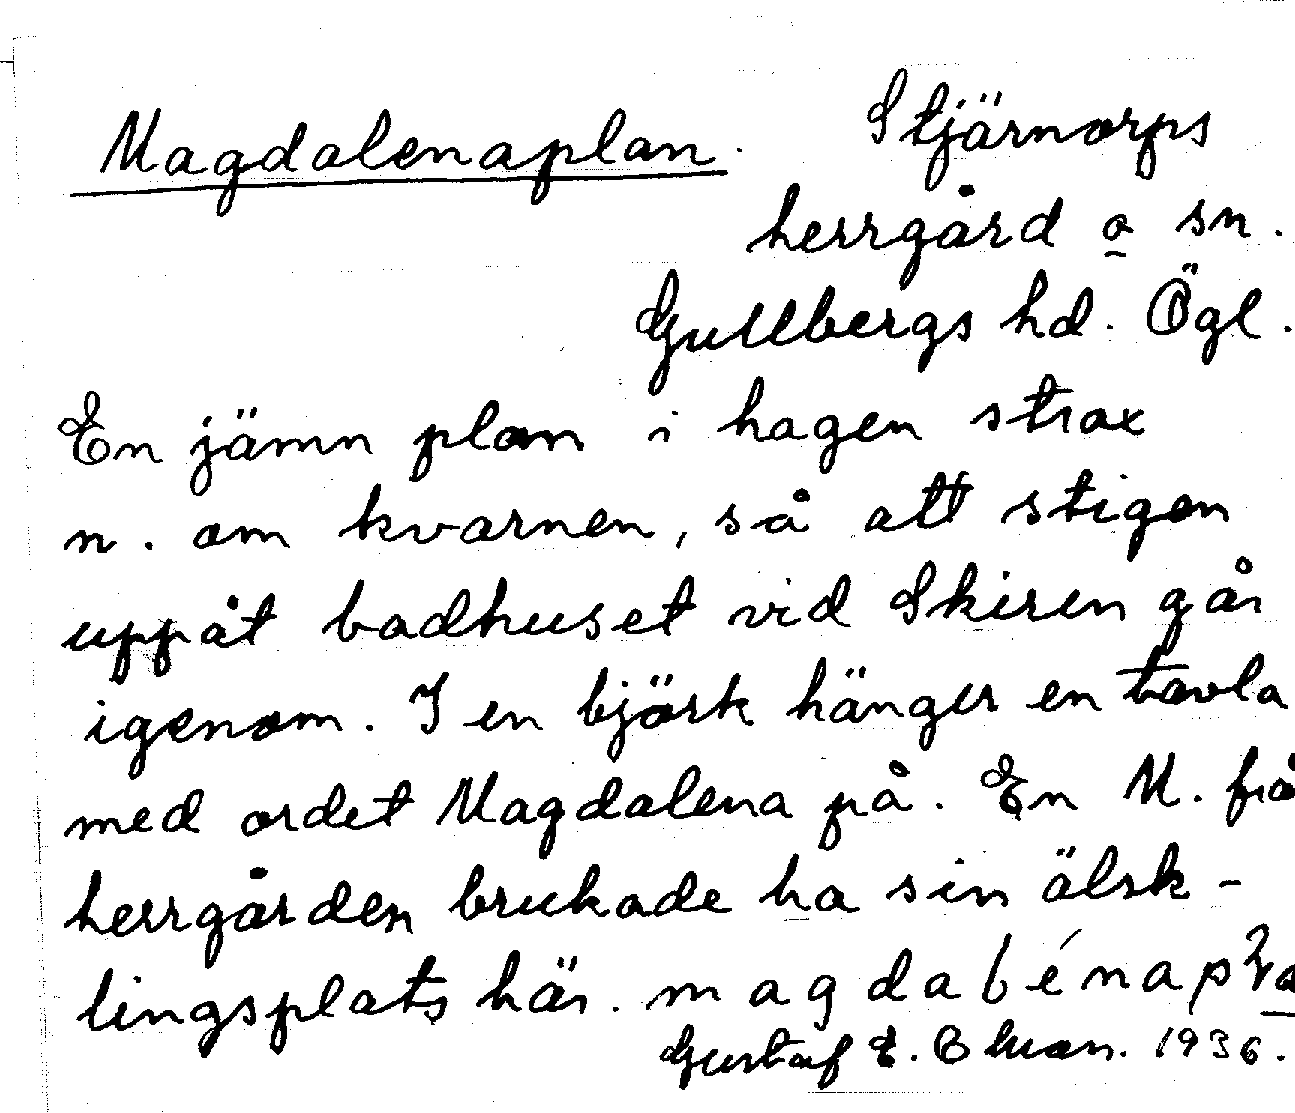 Magdalenaplan. Stjärnorps
herrgård o sn.
Gullbergs hd. Ögl.
En jämn plan i hagen strax
n. om kvarnen, så att stigen
uppåt badhuset vid Skiren går
igenom. I en björk hänger en tavla
med ordet Magdalena på. En M. frå
herrgården brukade ha sin älsk-
lingsplats här. magda
Gustaf E. 1936.